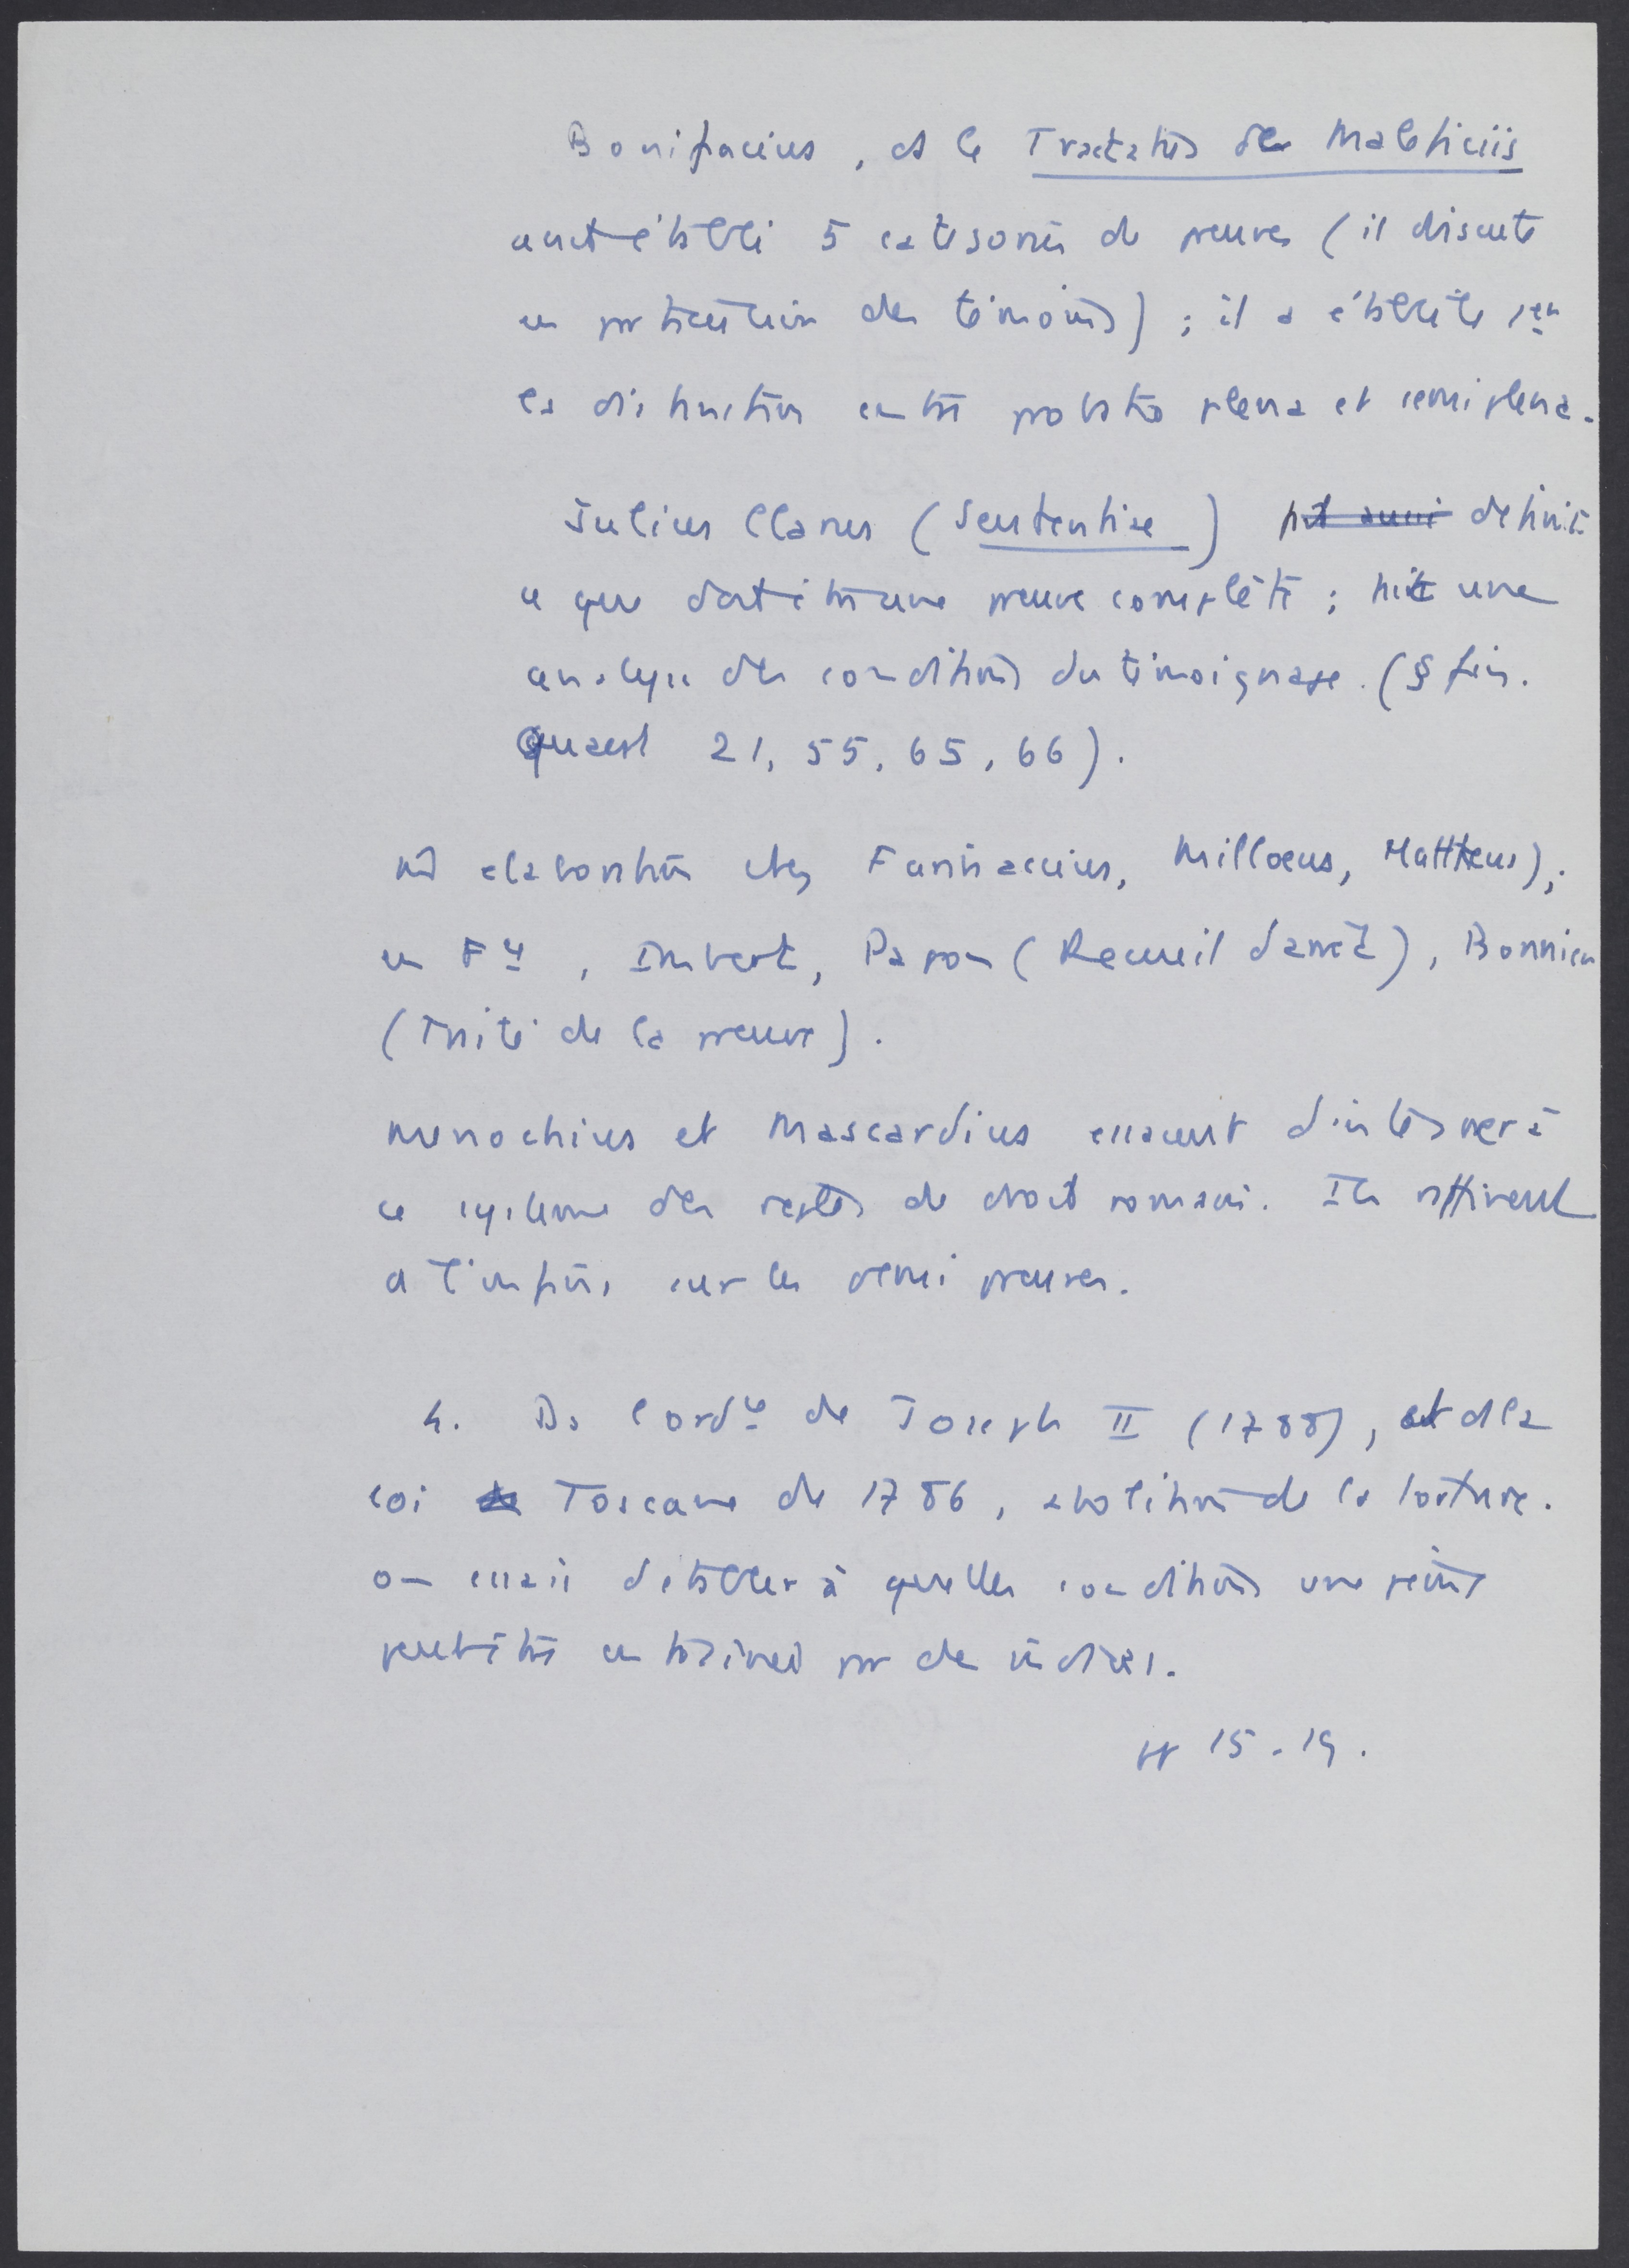 Bonifacius, ds le Tractatus de Maleficiis
avait établi 5 catégories de preuves (il discute
en particulier des témoins) ; il a établi le 1er
la distinction entre probatio plena et semiplena.
Julius Clarus (Sententiae) fait aussi définit
ce que doit être une preuve complète ; fait une
analyse des conditions du témoignage. (§ fin.
Quaest 21, 55, 65, 66).
elaboration chez Farinaccius, Milloeus, Mattheus),
en Fce, Imbert, Papon (Recueil d'arrêts), Bonnier
(Traité de la preuve).
Menochius et Mascardius essaient d'intégrer à
ce système des restes de droit romain. Ils raffinent
à l'infini, sur les demi preuves.
4. Ds l'ordce de Joseph II (1788), et ds la
loi de Toscane de 1786, abolition de la torture.
on essaie d'établir à quelles conditions une peine
peut être entraînée par des indices.
pp 15-19.